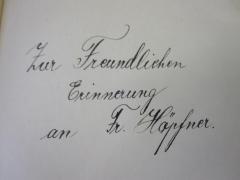 Zur Freundlichen
Erinnerung
an Fr. Höpfner.